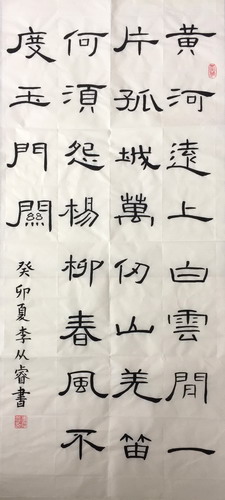 黃河遠上白雲間一
片孤城萬仞山羌笛
何須怨楊柳春風不
度玉門關
癸卯夏李从睿書